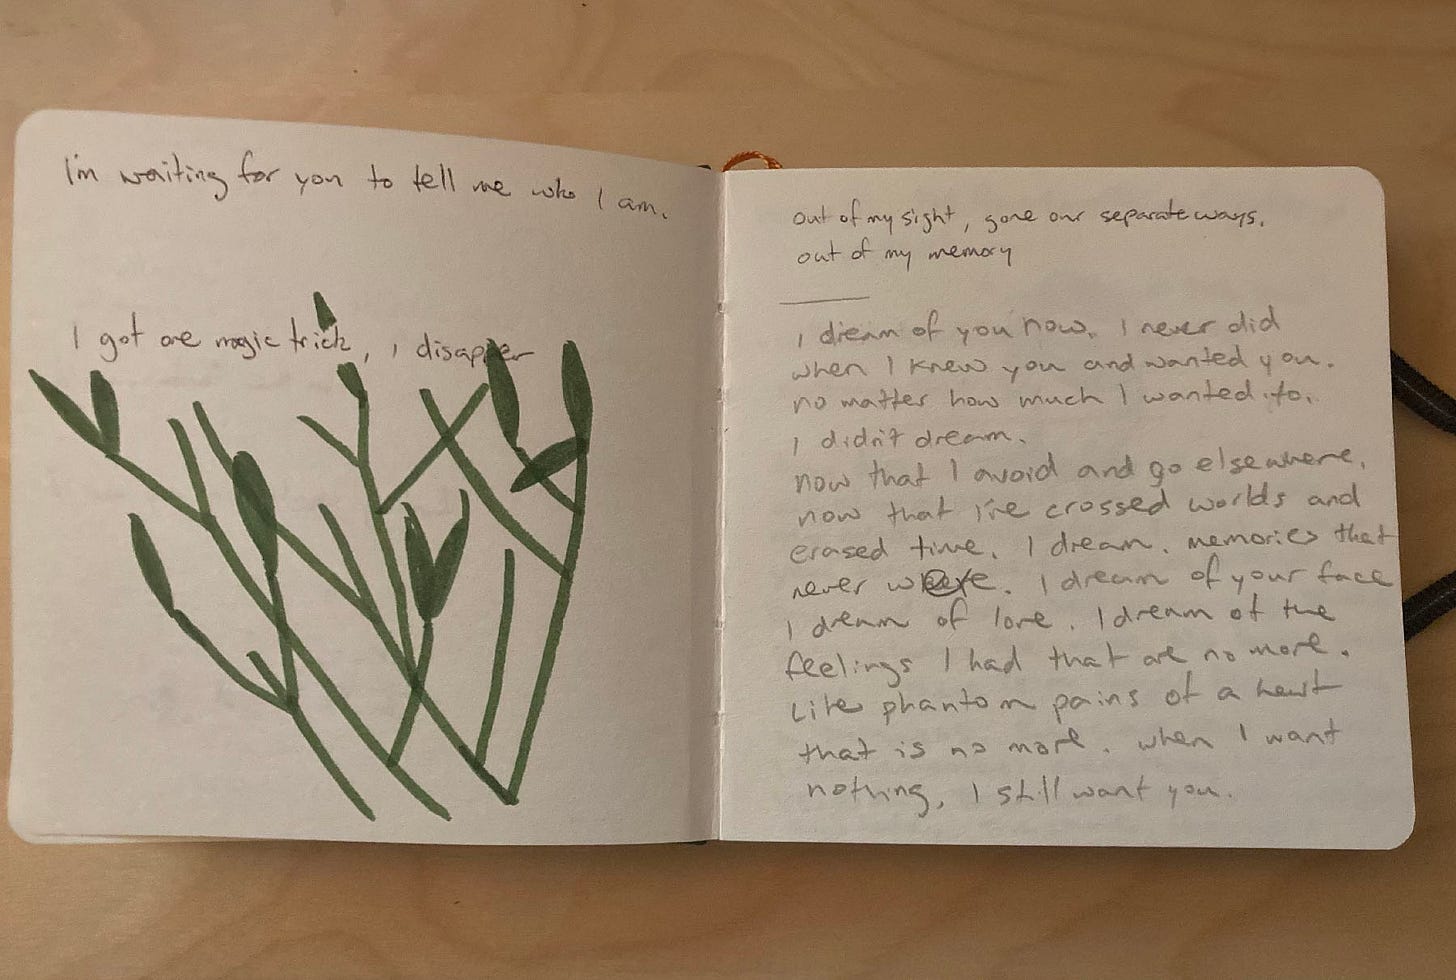 I'm waiting for you to tell me who I am.
I got one magic trick, I disappear
out of my sight, gone our separate ways.
out of my memory
I dream of you now. I never did
when I knew you and wanted you.
no matter how much I wanted to.
I didn't dream.
now that I avoid and go elsewhere,
now that i've crossed worlds and
erased time, I dream. memories that
never were. I dream of your face
I dream of love. I dream of the
feelings I had that are no more.
Like phantom pains of a heart
that is no more. when I want
nothing, I still want you.